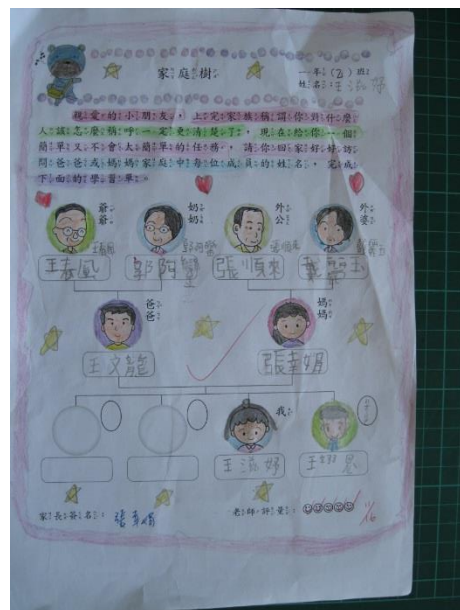 家庭樹
一年(乙)班
姓名:王滋
親愛的小朋友,上完家族稱謂你對什麼
人該怎麼稱呼一定更清楚了,現在給你一個
簡單又不會太簡單的任務,請你回家好好訪
問爸爸或媽媽家庭中每位成員的姓名,完成
下面的學習單。
爺爺 奶奶 外公 外婆
王春風 郭阿 張順來 玉
爸爸 媽媽
王文龍 張幸娟
我
王滋 王
家長簽名: 張幸娟 老師評量: